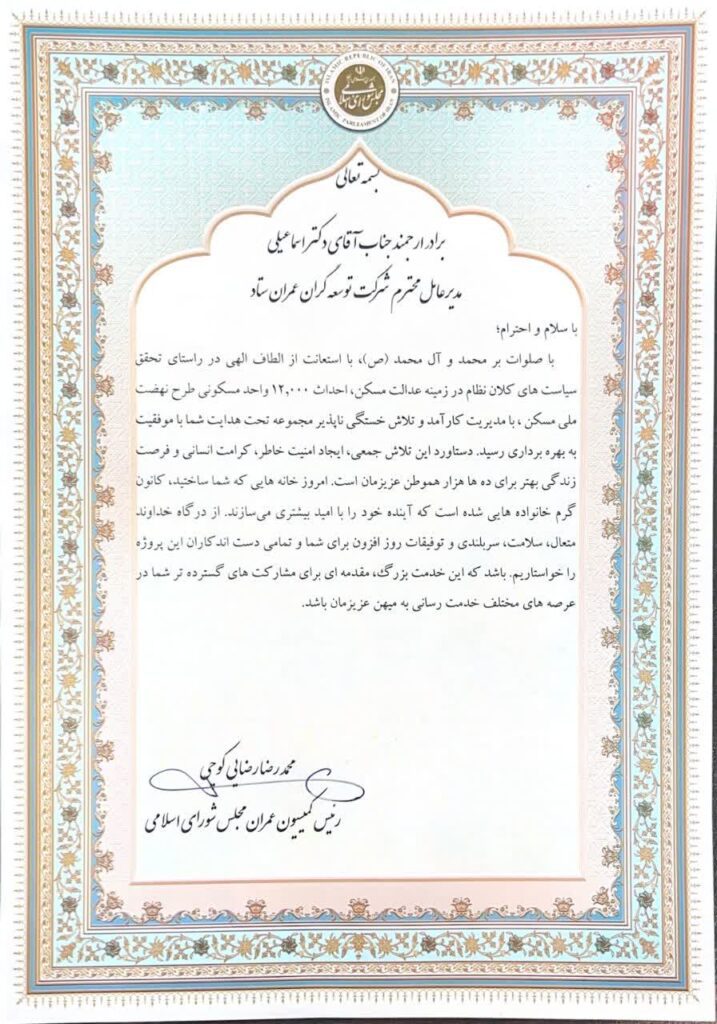 ISLAMIC REPUBLIC OF IRAN
مجلس شورای اسلامی
ISLAMIC PARLIAMENT OF IRAN
بسمه تعالی
برادر ارجمند جناب آقای دکتر اسماعیلی
مدیر عامل محترم شرکت توسعه گران عمران ستاد
با سلام و احترام؛
با صلوات بر محمد و آل محمد (ص)، با استعانت از الطاف الهی در راستای تحقق
سیاست های کلان نظام در زمینه عدالت مسکن، احداث ۱۲,۰۰۰ واحد مسکونی طرح نهضت
ملی مسکن ، با مدیریت کارآمد و تلاش خستگی ناپذیر مجموعه تحت هدایت شما با موفقیت
به بهره برداری رسید. دستاورد این تلاش جمعی، ایجاد امنیت خاطر، کرامت انسانی و فرصت
زندگی بهتر برای ده ها هزار هموطن عزیزمان است. امروز خانه هایی که شما ساختید، کانون
گرم خانواده هایی شده است که آینده خود را با امید بیشتری می‌سازند. از درگاه خداوند
متعال، سلامت، سربلندی و توفیقات روز افزون برای شما و تمامی دست اندکاران این پروژه
را خواستاریم. باشد که این خدمت بزرگ، مقدمه ای برای مشارکت های گسترده تر شما در
عرصه های مختلف خدمت رسانی به میهن عزیزمان باشد.
محمدرضا رضایی کوچی
رئیس کمیسیون عمران مجلس شورای اسلامی